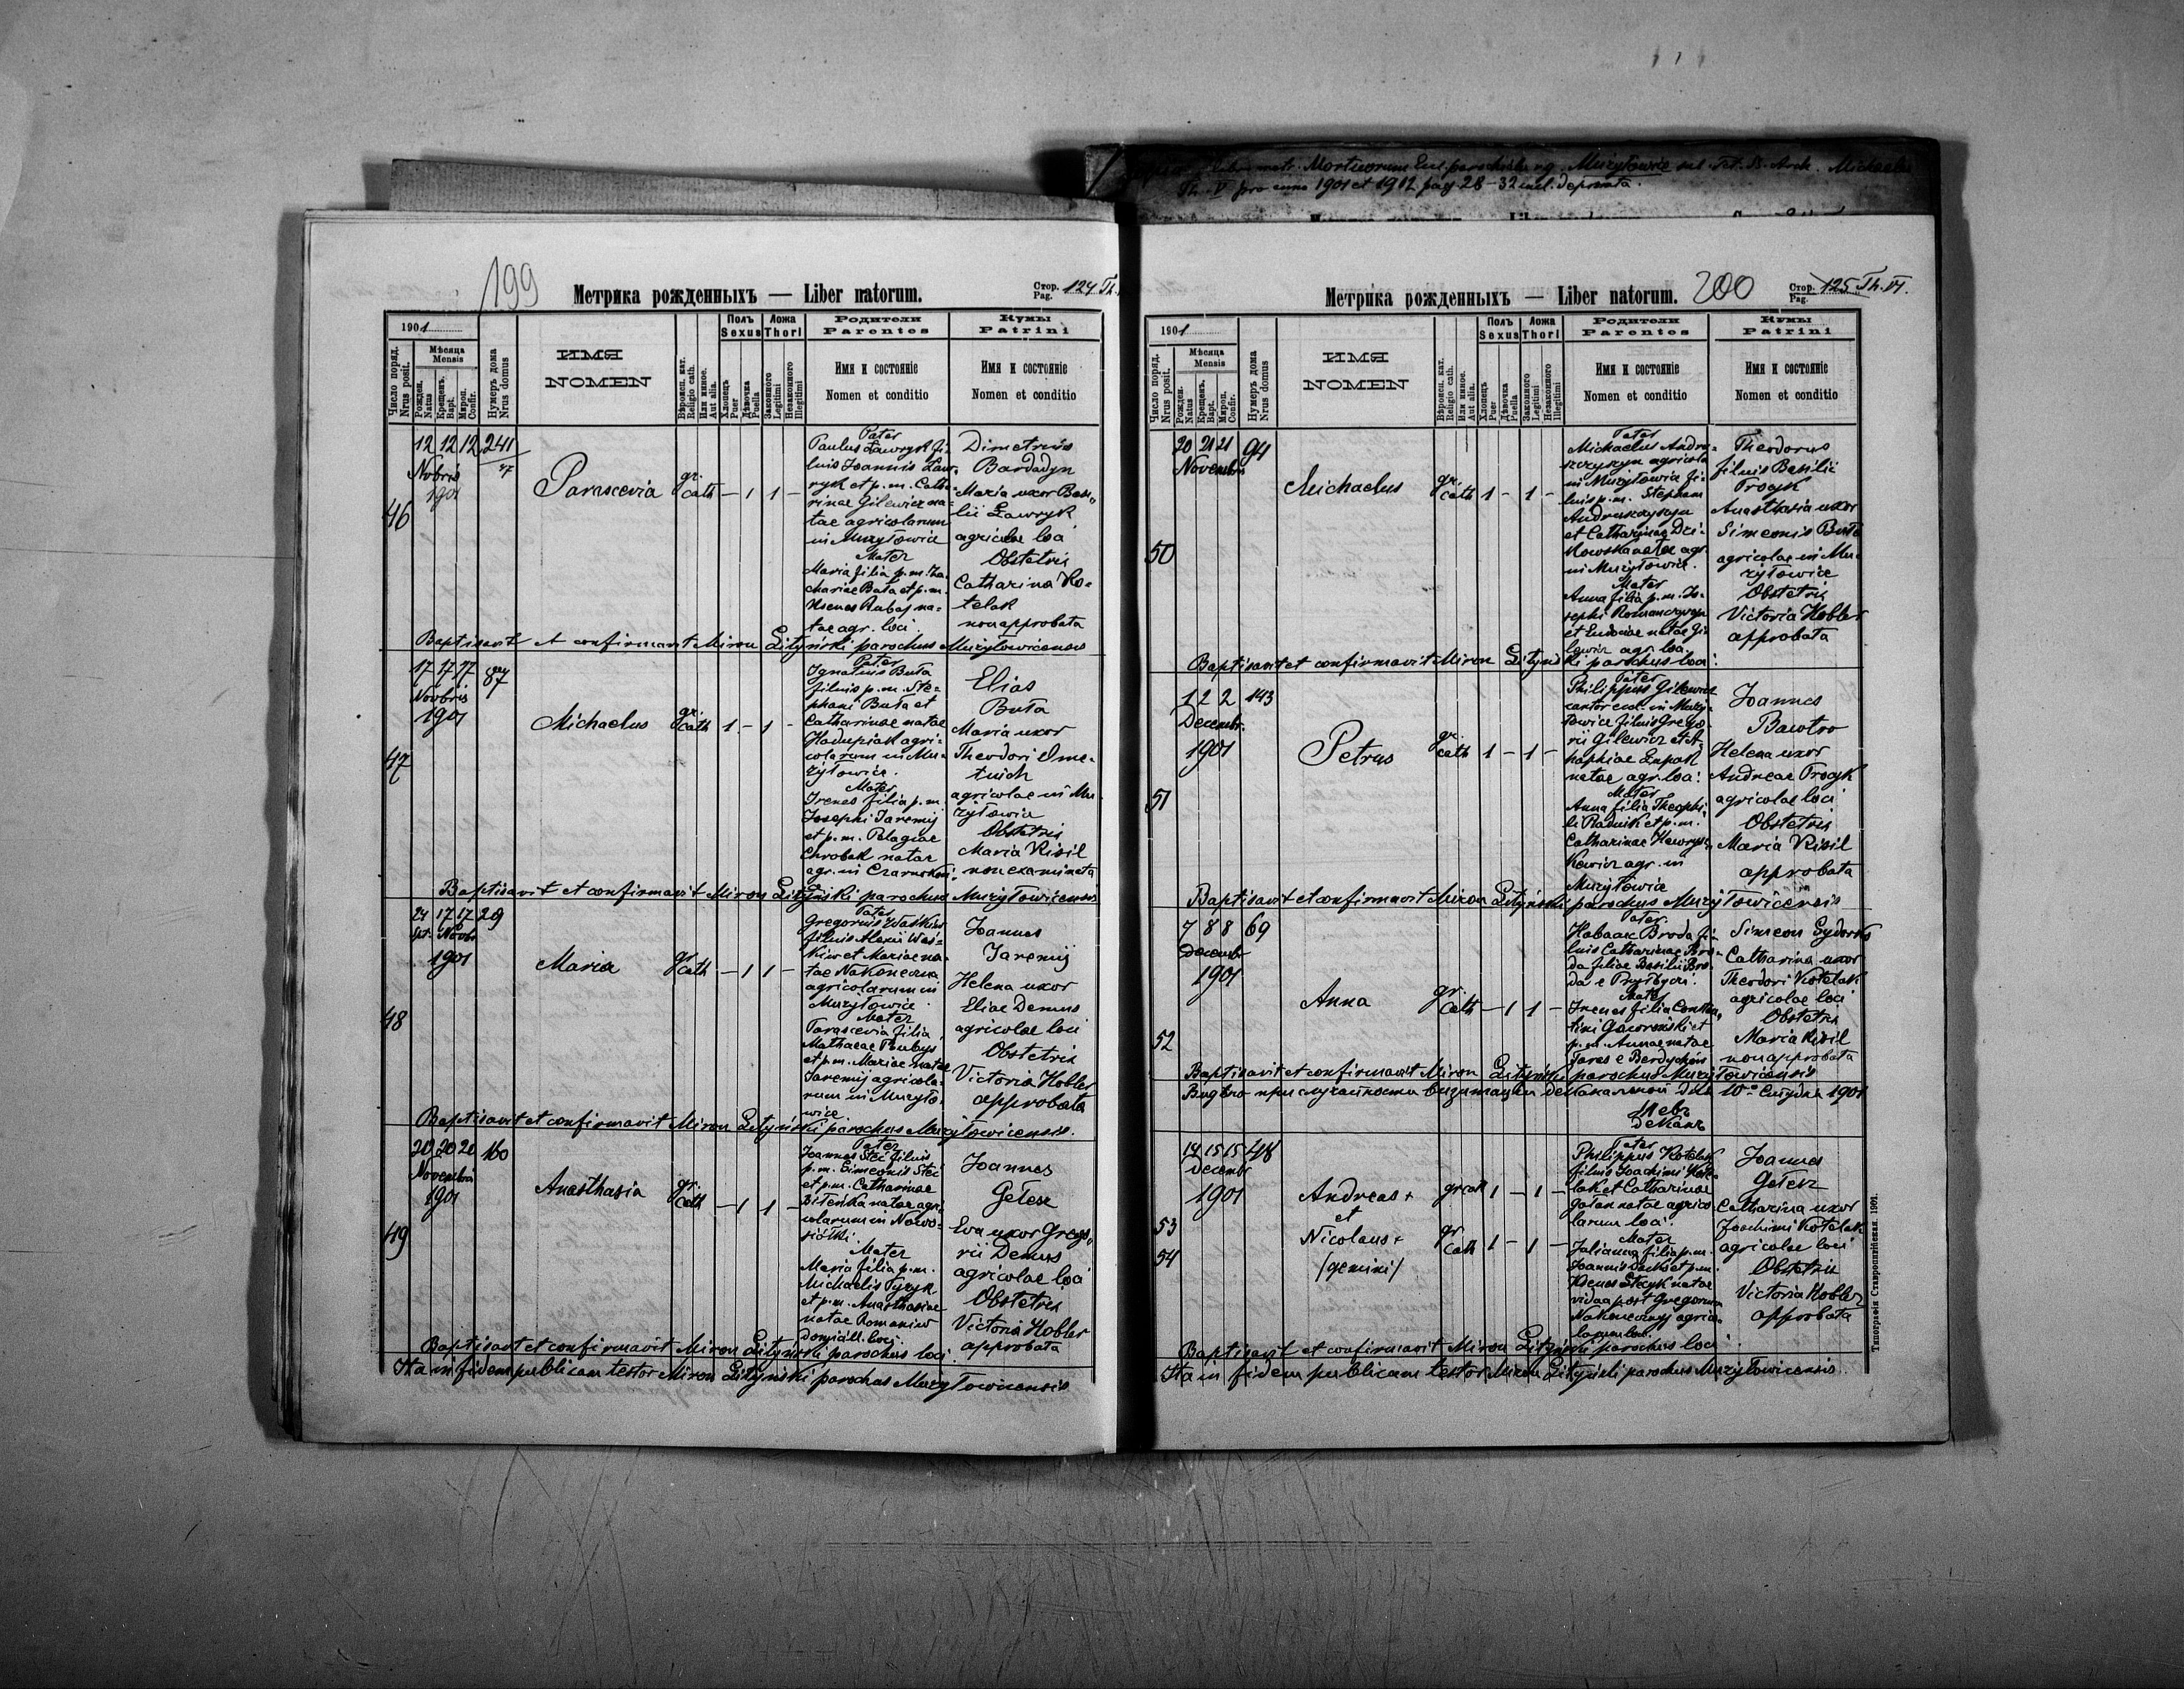 Mortuorum Eccl. parochialis rg. Mużyłowice sul. Tit. S. Arch. Michaelis
Th. V pro anno 1901 et 1912 pag 28-32 incl. deprompta.
199
Метрика рожденныхъ — Liber natorum.
Стор. Pag. 124 Th.
1901
Число поряд. Nrus posit.
Мѣсяца Mensis
Рожден. Natus
Крещенъ. Bapt.
Мѵроп. Confir.
Нумеръ дома Nrus domus
ИМЯ
NOMEN
Вѣроисп. кат. Religio cath.
Или инное. Aut alia.
Полъ Sexus
Хлопецъ Puer
Дѣвочка Puella
Ложа Thori
Законного Legitimi
Незаконного Illegitimi
Родители
Parentes
Имя и состояніе
Nomen et conditio
Кумы
Patrini
Имя и состояніе
Nomen et conditio
46
12 12 12 241
Novbris 47
1901
Parascevia
gr. cath — 1 1 —
Pater
Paulus Ławryk fi-
lius Joannis Ław-
ryk et p.m. Catha-
rinae Gilewicz na-
tae agricolarum
in Mużyłowice
Mater
Maria filia p.m. Za-
chariae Buła et p.m.
Ksenes Rubaj na-
tae agr. loci.
Dimetrius
Bardadyn
Maria uxor Basi-
lii Ławryk
agricolae loci
Obstetrix
Catharina Ko-
telak
non approbata
Baptisavit et confirmavit Miron Lityński parochus Mużyłowicensis
47
17 17 17 87
Novbris
1901
Michaelus
gr. cath 1 - 1 -
Pater
Ignatius Buła
filius p.m. Ste-
phani Buła et
Catharinae natae
Hadupiak agri-
colarum in Mu-
żyłowice.
Mater
Irenes filia p.m.
Josephi Jaremij
et p.m. Pelagiae
Chrobak natae
agr. in Czarnokoń.
Elias
Buła
Maria uxor
Theodori Dme-
tuich
agricolae in Mu-
żyłowice
Obstetrix
Maria Kisil
non examinata
Baptisavit et confirmavit Miron Lityński parochus Mużyłowicensis
48
24 17 17 29
Spt. Novbr
1901
Maria
gr. cath — 1 1 —
Pater
Gregorius Waśkiw
filius Alexii Waś-
kiw et Mariae na-
tae Nakoneczna
agricolarum in
Mużyłowice.
Mater
Parascevia filia
Mathaeae Poubys
et p.m. Mariae natae
Jaremij agricola-
rum in Mużyło-
wice.
Joannes
Jaremij
Helena uxor
Eliae Demus
agricolae loci
Obstetrix
Victoria Kobler
approbata
Baptisavit et confirmavit Miron Lityński parochus Mużyłowicensis.
49
20 20 20 160
Novembris
1901
Anasthasia
gr. cath — 1 1 —
Pater
Joannes Steć filius
p.m. Simeonis Steć
et p.m. Catharinae
Bileńka natae agri-
colarum in Nowo-
siółki.
Mater
Maria filia p.m.
Michaelis Tyzyk
et p.m. Anasthasiae
natae Romaniw
domicill. loci.
Joannes
Gełesz
Eva uxor Grego-
rii Demus
agricolae loci
Obstetrix
Victoria Kobler
approbata
Baptisavit et confirmavit Miron Lityński parochus loci
Ita in fidem publicam testor Miron Lityński parochus Mużyłowicensis
Метрика рожденныхъ — Liber natorum.
200
Стор. Pag. 125 Th. VI.
1901
Число поряд. Nrus posit.
Мѣсяца Mensis
Рожден. Natus
Крещенъ. Bapt.
Мѵроп. Confir.
Нумеръ дома Nrus domus
ИМЯ
NOMEN
Вѣроисп. кат. Religio cath.
Или инное. Aut alia.
Полъ Sexus
Хлопецъ Puer
Дѣвочка Puella
Ложа Thori
Законного Legitimi
Незаконного Illegitimi
Родители
Parentes
Имя и состояніе
Nomen et conditio
Кумы
Patrini
Имя и состояніе
Nomen et conditio
50
20 21 21 94
Novembris
Michaelus
gr. cath 1 - 1 -
Pater
Michaelus Andru-
szczyszyn agricola
in Mużyłowice fi-
lius p.m. Stephani
Andruszczyszyn
et Catharinae Dzi-
kowska natae agr.
in Mużyłowice.
Mater
Anna filia p.m. Jo-
sephi Romanczyszyn
et Eudociae natae Gi-
lewicz agr. loci.
Theodorus
filius Basilii
Procyk
Anasthasia uxor
Simeonis Buła
agricolae in Mu-
żyłowice
Obstetrix
Victoria Kobler
approbata
Baptisavit et confirmavit Miron Lityński parochus loci.
51
1 2 2 143
Decembr.
1901
Petrus
gr. cath 1 - 1 -
Pater
Philippus Gilewicz
cantor eccl. in Muży-
łowice filius Grego-
rii Gilewicz et A-
haphiae Łupak
natae agr. loci.
Mater
Anna filia Theophi-
li Rudnik et p.m.
Catharinae Hawrysz-
kewicz agr. in
Mużyłowice
Joannes
Bawtro
Helena uxor
Andreae Procyk
agricolae loci
Obstetrix
Maria Kisil
approbata
Baptisavit et confirmavit Miron Lityński parochus Mużyłowicensis
52
7 8 8 69
Decembr
1901
Anna
gr. cath — 1 1 —
Pater
Habaac Broda fi-
lius Catharinae Bro-
da filiae Basilii Bro-
da e Przyłbyci.
Mater
Irenes filia Constan-
tini Gaworoński et
p.m. Annae natae
Taras e Berdychów
Simeon Sydorko
Catharina uxor
Theodori Kotelak
agricolae loci
Obstetrix
Maria Kisil
non approbata
Baptisavit et confirmavit Miron Lityński parochus Mużyłowicensis
Видѣно при случайности визитаціи деканальной дня 10го Студня 1901
деканъ
53
54
14 15 15 48
Decembr
1901
Andreas +
et
Nicolaus +
/gemini/
gr cath 1 - 1 -
gr. cath 1 - 1 -
Pater
Philippus Kotelak
filius Joachimi Kote-
lak et Catharinae
Gołan natae agrico-
larum loci.
Mater
Julianna filia p.m.
Joannis Senko et p.m.
Ksenes Stecyk natae
vidua post Gregorium
Nakonecznyj agrico-
larum loci.
Joannes
Gełesz
Catharina uxor
Joachimi Kotelak
agricolae loci
Obstetrix
Victoria Kobler
approbata
Baptisavit et confirmavit Miron Lityński parochus loci.
Ita in fidem publicam testor Miron Lityński parochus Mużyłowicensis.
Типографія Ставропигійская. 1901.